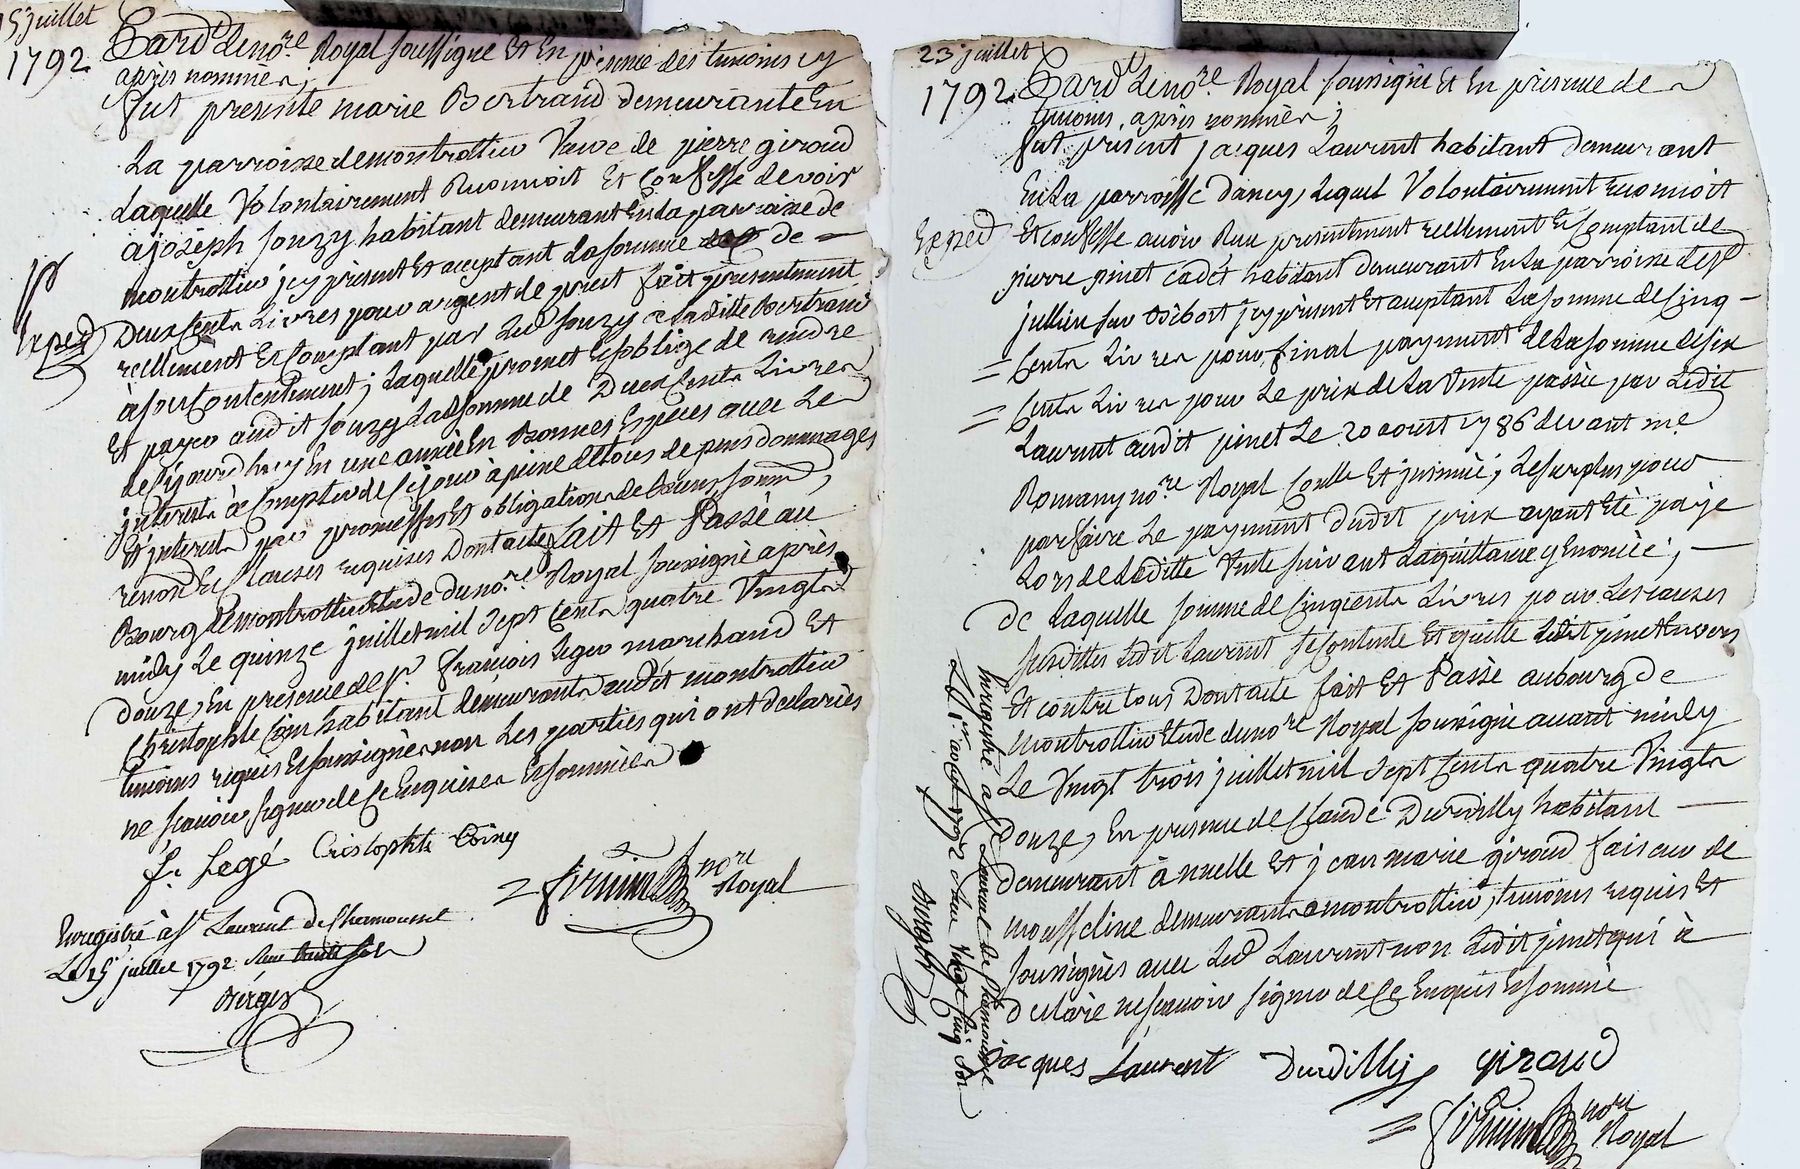 15 juillet
1792
Pard. le nore Royal soussigné Et En présence des temoins cy
après nommés,
fut presente marie Bertrand demeurante En
La parroisse de montrottier Veuve de pierre giroud
Laquelle Volontairement Reconnoit Et Confesse devoir
a joseph souzy habitant demeurant En la parroisse de
montrottier jcy présent Et aceptant La somme de
Deux Cents Livres pour argent de prest fait présentement
reellement Et Comptant par Led souzy a Laditte Bertrand
à son Contentement; Laquelle promet Et soblige de rendre
Et payer audit souzy La ditte somme de Deux Cents Livres
de Cejourdhuy En une année En Bonnes Espèces avec Les
jnterests à Compter de Cejour à peine de tous depens dommages
Et jnterests par promesses Et obligations de Biens, soum,
renon Et Clauses requises Dont acte fait Et Passé au
Bourg de montrottier Etude du nore Royal soussigné après
midy Le quinze juillet mil sept Cents quatre Vingts
Douze, En présence de sr françois Leger marchand Et
Christophle Coin habitant demeurants audit montrottier
temoins requis Et soussignés non Les parties qui ont declarées
ne scavoir signer de Ce Enquises Et sommées
fs Legé Cristophle Coing
nore
Royal
Exped
Enregistré à st Laurent de Chamousset
Le 15 juillet 1792
Berger
23 juillet
1792.
Pard. Le nore Royal soussigné Et En présence des
temoins, après nommés;
fut présent jacques Laurent habitant demeurant
En La parroisse dancy, Lequel Volontairement reconnoit
Exped
Et confesse avoir Reçu présentement reellement Et Comptant de
pierre pinet cadet habitant demeurant En La parroisse de st
jullien sur Bibost jcy présent Et aceptant La somme de Cinq
Cents Livres pour final payement de La somme de six
Cents Livres pour Le prix de La Vente passée par Ledit
Laurent audit pinet Le 20 aoust 1786 devant me
Romany nore Royal Conlle Et jnsinué; Le surplus pour
parfaire Le payement dudit prix ayant Eté payé
Lors de Laditte Vente suivant La quittance y Enoncée;
de Laquelle somme de Cinq Cents Livres pour Les causes
susdittes Ledit Laurent se Contente Et quitte Ledit pinet Envers
Et contre tous Dont acte fait Et Passé au bourg de
montrottier Etude du nore Royal soussigné avant midy
Le Vingt trois juillet mil sept Cents quatre Vingts
Douze, En présence de Claude Durdilly habitant
demeurant à nuelle Et jean marie giroud faiseur de
mousseline demeurants a montrottier, temoins requis Et
soussignés avec Led Laurent non Ledit pinet qui à
declaré ne scavoir signer de Ce Enquis Et sommé
jacques Laurent Durdilly giroud
nore
Royal
Enregistré à st Laurent de Chamousset
Le 1er aoust 1792 Vingt Cinq sols
Berger